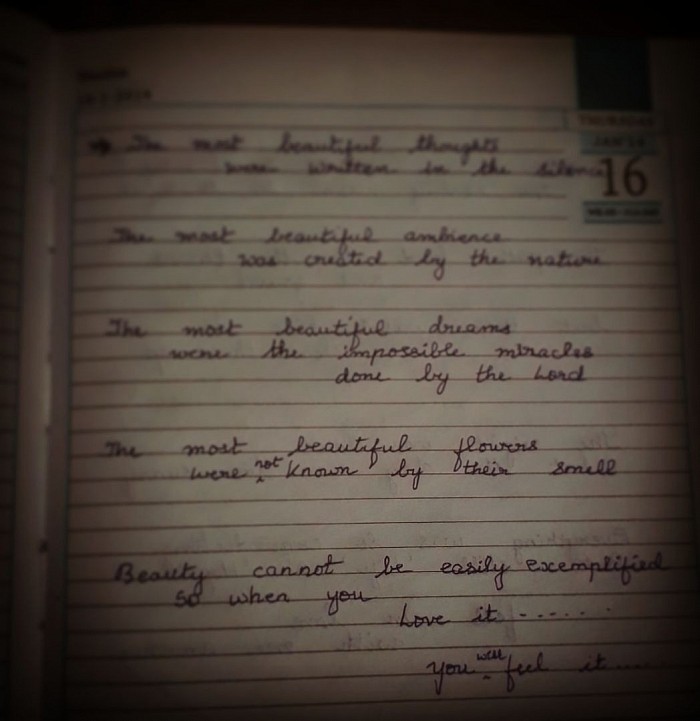 THURSDAY
JAN'14
16
→ The most beautiful thoughts
were written in the silence
The most beautiful ambience
was created by the nature
The most beautiful dreams
were the impossible miracles
done by the Lord
The most beautiful flowers
were not known by their smell
Beauty cannot be easily exemplified
so when you
Love it ------
you will feel it....